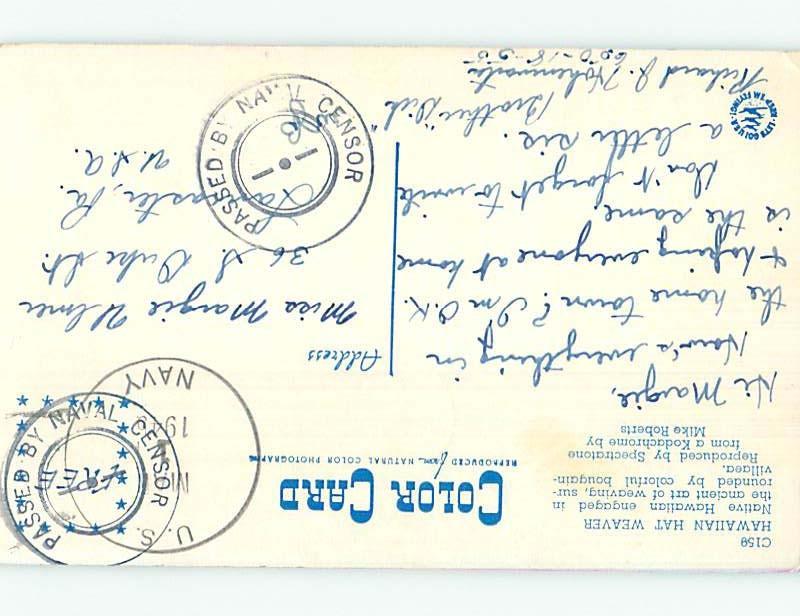 C150
HAWAIIAN HAT WEAVER
Native Hawaiian engaged in
the ancient art of weaving, sur-
rounded by colorful bougain-
villaea.
Reproduced by Spectratone
from a Kodachrome by
Mike Roberts
COLOR CARD
REPRODUCED from NATURAL COLOR PHOTOGRAPHS
Hi Margie,
How's everything in
the home town? I'm O.K.
& hoping everyone at home
is the same.
Don't forget to write
a letter sis.
Brother "Dick"
Richard J.
650-18-55
Address
Miss Margie Ulmer
36 S. Duke St.
Lancaster, Pa.
U.S.A.
FREE
U. S. NAVY
194
PASSED BY NAVAL CENSOR
PASSED BY NAVAL CENSOR
LET'S GO! U.S.A. KEEP 'EM FLYING!